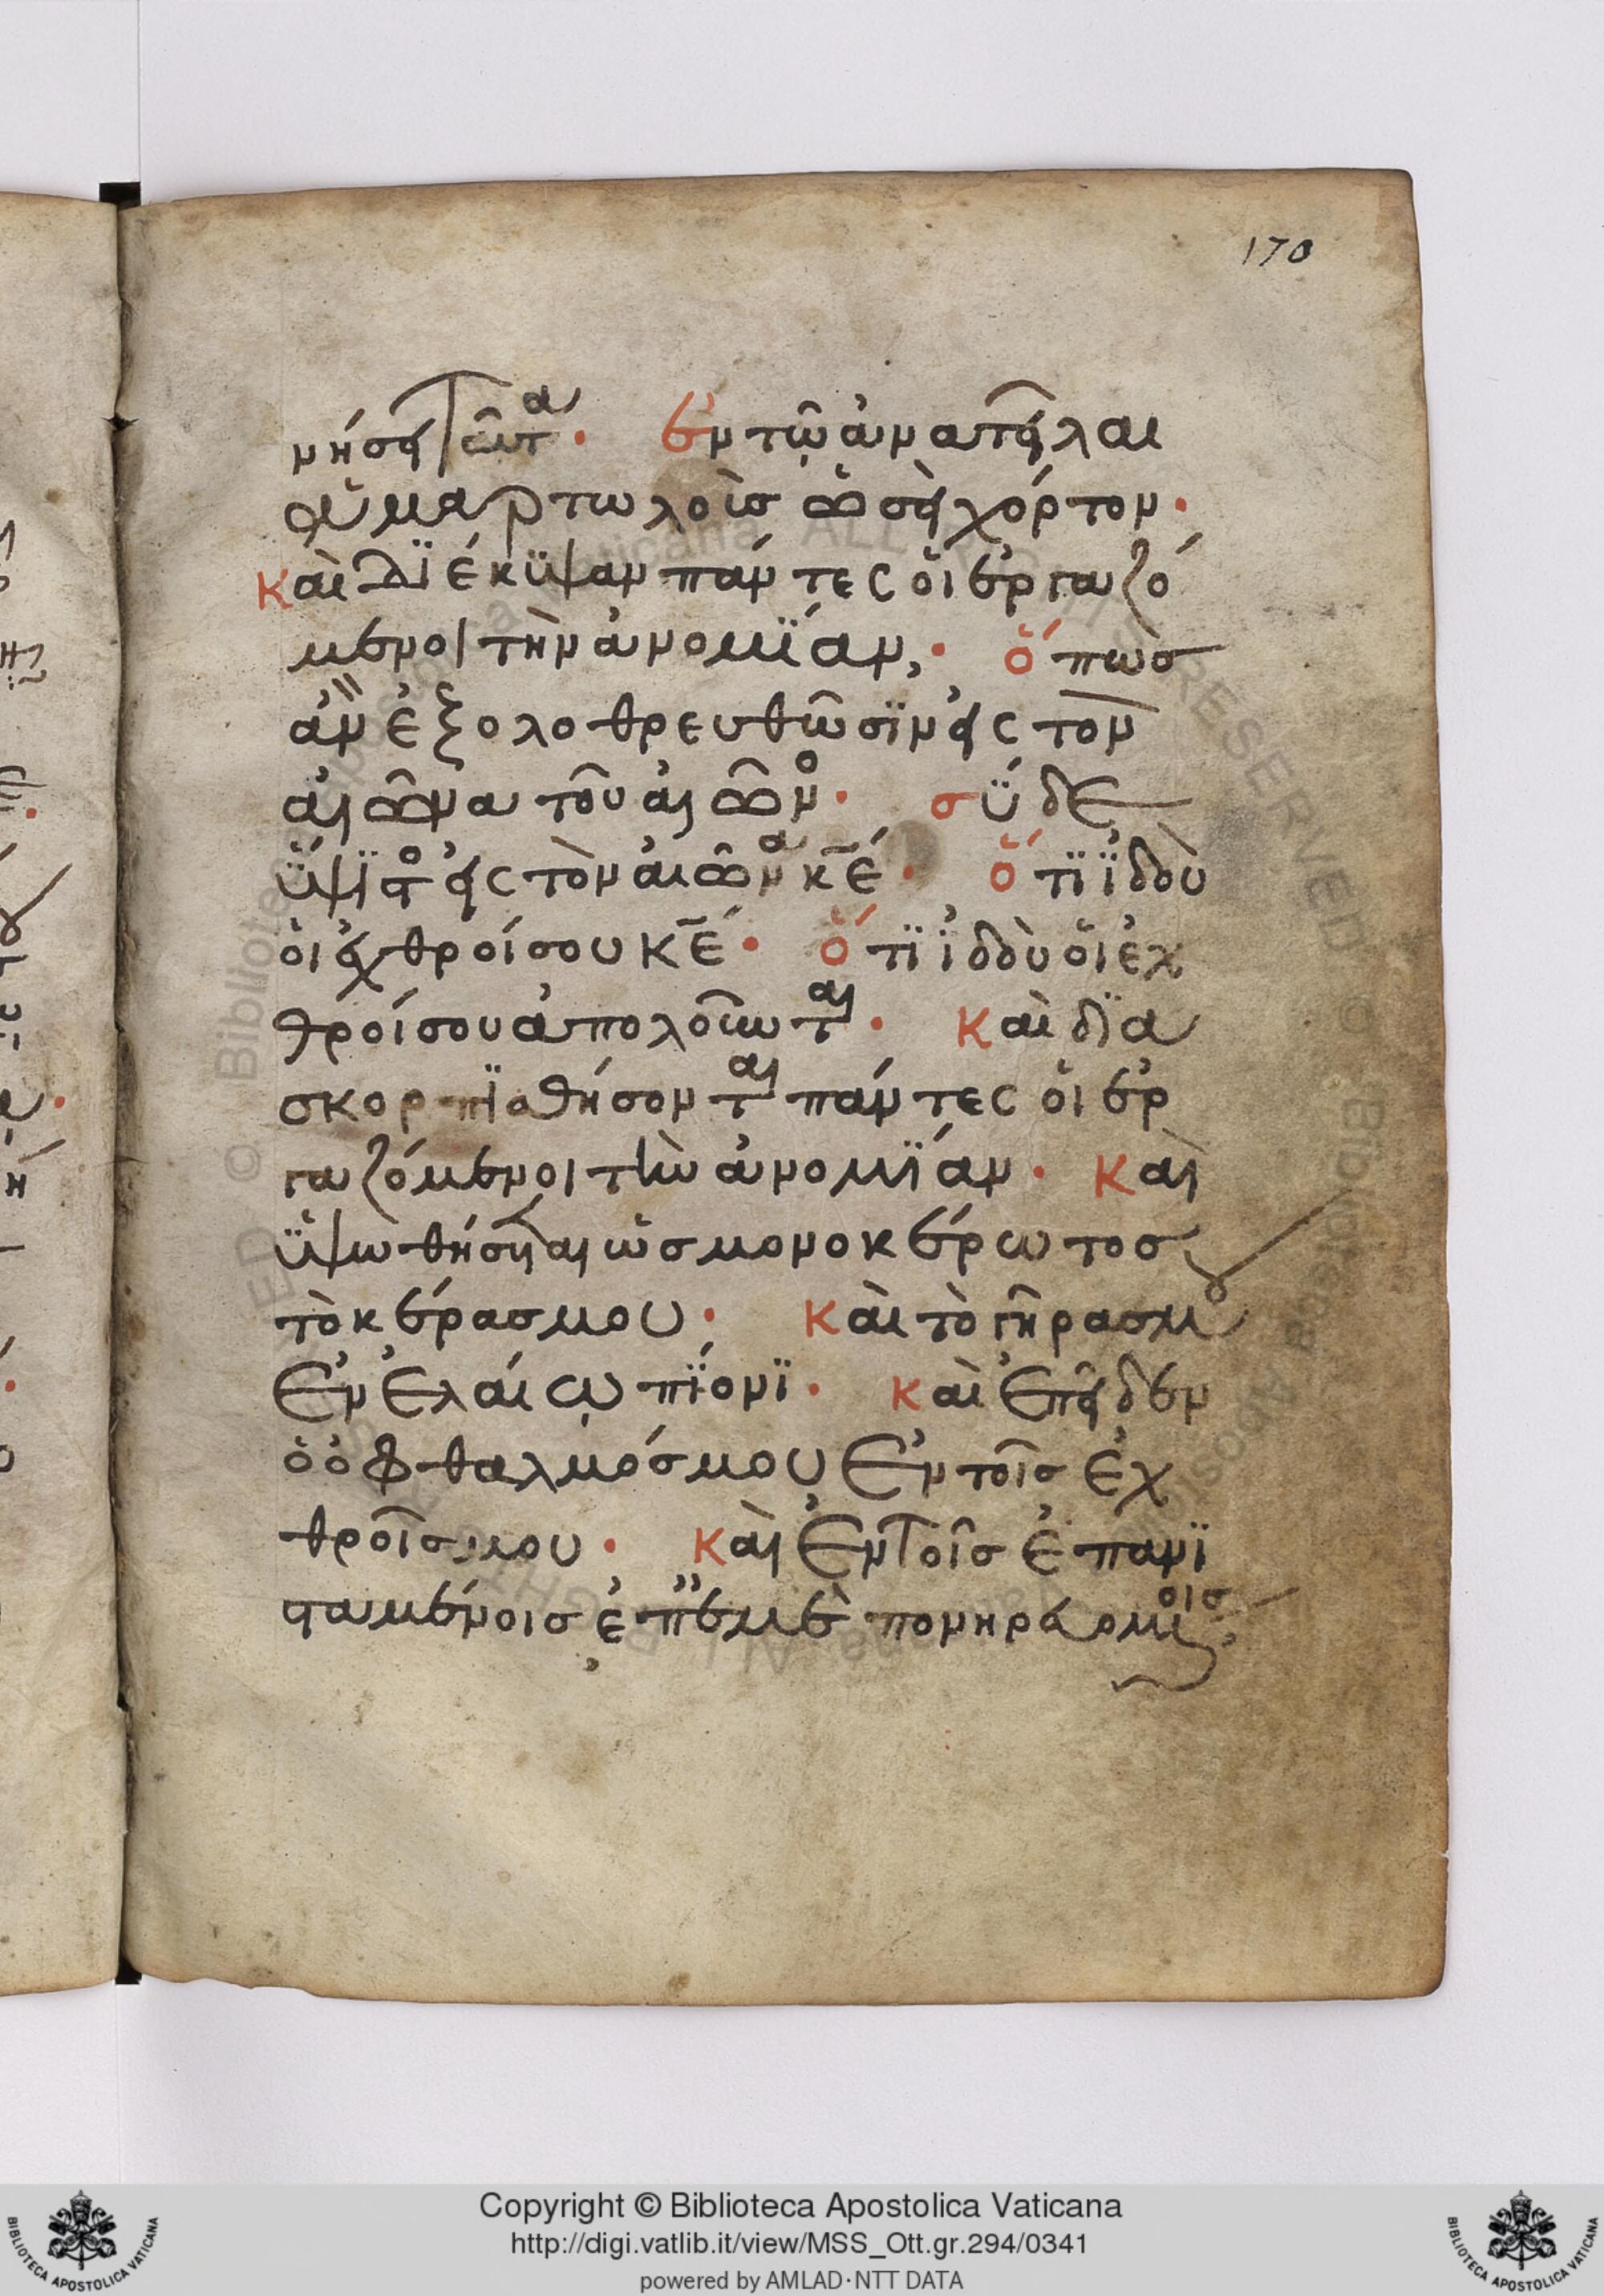 170
νήσει ταῦτα· Ἐν τῷ ἀνατεῖλαι
ἁμαρτωλοὺσ ὡσεὶ χόρτον·
Καὶ διέκυψαν πάντες οἱ ἐργαζό
μενοι τὴν ἀνομίαν· ὅπωσ
ἂν ἐξολοθρευθῶσιν εἰς τὸν
αἰῶνα τοῦ αἰῶνο· σὺ δὲ
ὕψιστο εἰς τὸν αἰῶνα κε· ὅτι ἰδοὺ
οἱ ἐχθροί σου κε· ὅτι ἰδοὺ οἱ ἐχ
θροί σου ἀπολοῦνται· Καὶ δια
σκορπισθήσονται πάντες οἱ ἐρ
γαζόμενοι τὴν ἀνομίαν· Καὶ
ὑψωθήσεται ὡσ μονοκέρωτοσ
τὸ κέρασ μου· Καὶ τὸ γῆρασ μου
Ἐν ἐλαίῳ πίονι· Καὶ ἐπεῖδεν
ὁ ὀφθαλμόσ μου ἐν τοῖσ ἐχ
θροῖσ μου· Καὶ ἐν τοῖσ ἐπανι
σταμένοισ ἐπ' ἐμὲ πονηρευομένοισ
Copyright © Biblioteca Apostolica Vaticana
http://digi.vatlib.it/view/MSS_Ott.gr.294/0341
powered by AMLAD·NTT DATA
BIBLIOTECA APOSTOLICA VATICANA
BIBLIOTECA APOSTOLICA VATICANA